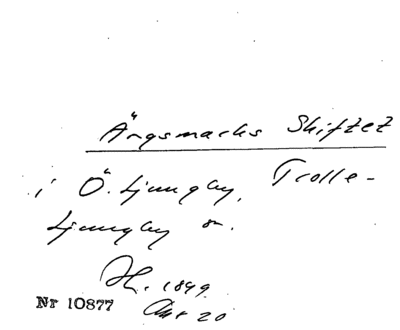 Ängsmarks Skiftet
i Ö. Ljungby, Trolle-
Ljungby s.
H. 1899
Nr 10877 Akt 20